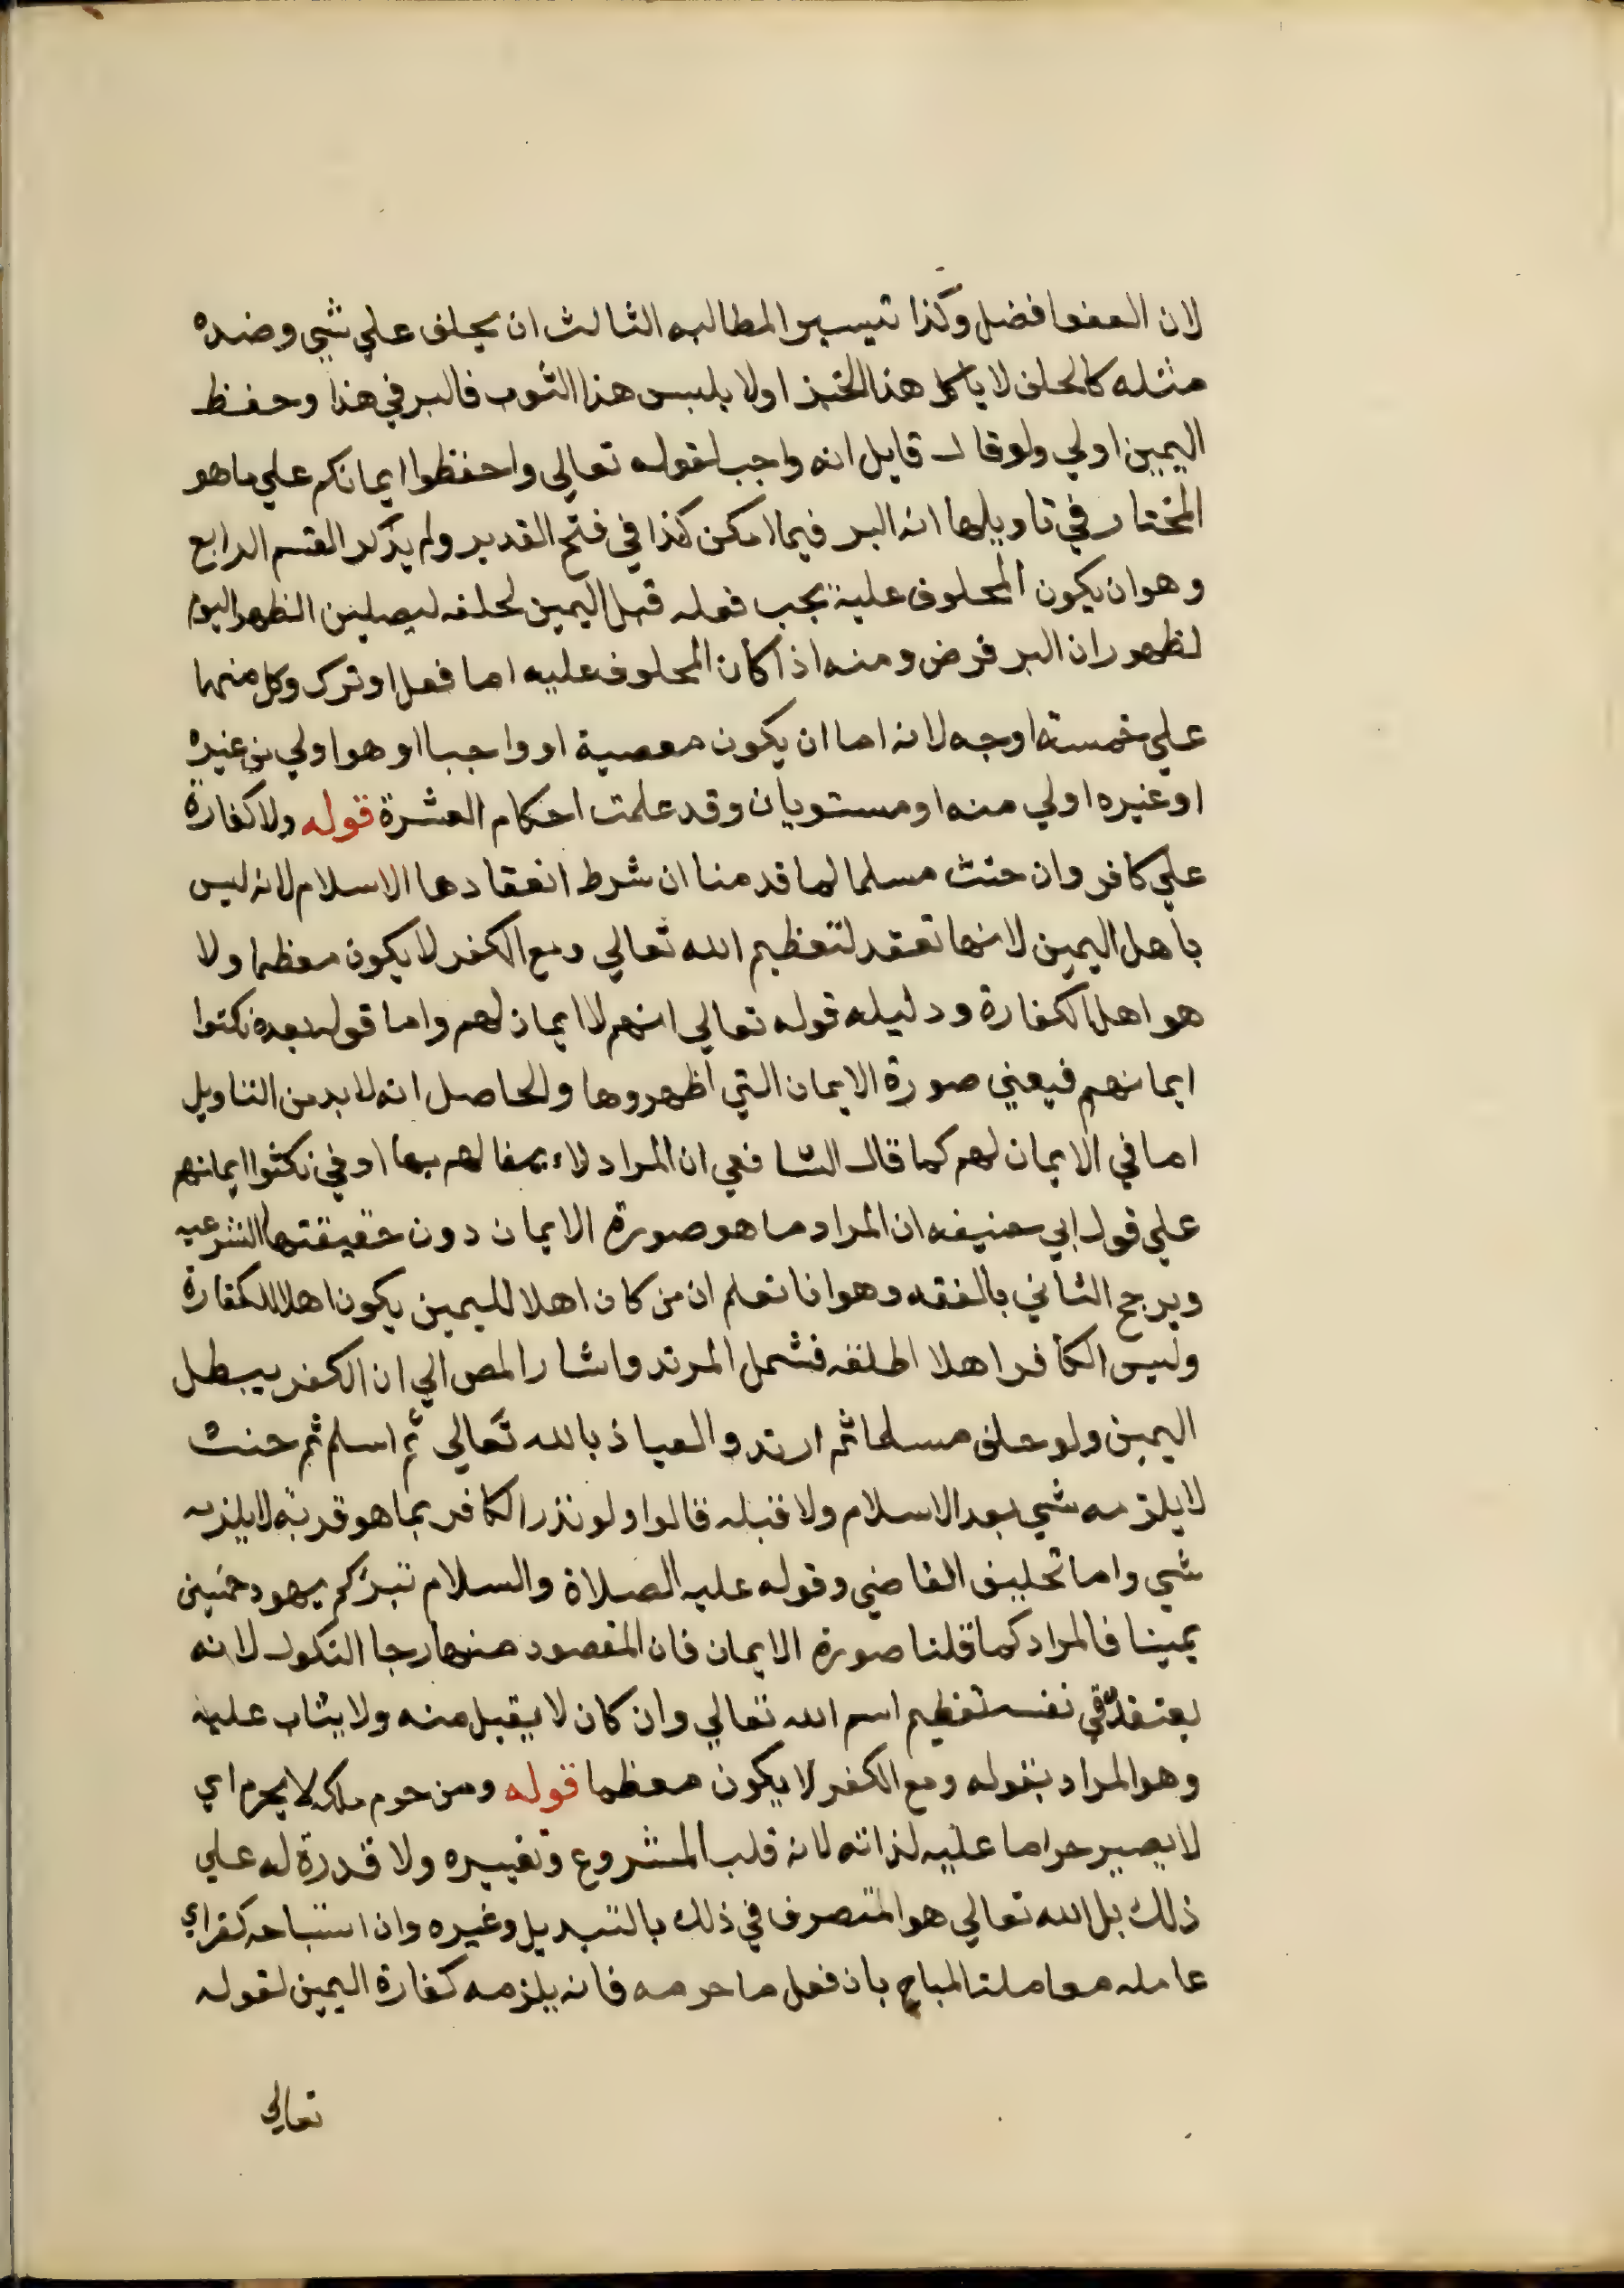 لان العفو افضل وكذا تيسير المطالبه الثالث ان يحلف علي شي وضده
مثله كالحلف لا ياكل هذا الخبز اولا يلبس هذا الثوب فالبر في هذا وحفظ
اليمين اولي ولو قال قايل انه واجب لقوله تعالي واحفظوا ايمانكم علي ما هو
المختار في تاويلها انه البر فيما امكن كذا في فتح القدير ولم يذكر القسم الرابع
وهو ان يكون المحلوف عليه يجب فعله قبل اليمين لحلفه ليصلين الظهر اليوم
لظهور ان البر فرض ومنه اذا كان المحلوف عليه اما فعل او ترك وكل منهما
علي خمسة اوجه لانه اما ان يكون معصية او واجبا او هو اولي من غيره
او غيره اولي منه او مستويان وقد علمت احكام العشرة قوله ولا كفارة
علي كافر وان حنث مسلما لما قدمنا ان شرط انعقادها الاسلام لانه ليس
باهل اليمين لانها تعقد لتعظيم الله تعالي ومع الكفر لا يكون معظما ولا
هو اهل الكفارة ودليله قوله تعالي انهم لا ايمان لهم واما قوله بعده نكثوا
ايمانهم فيعني صورة الايمان التي اظهروها والحاصل انه لا بد من التاويل
اما في الايمان لهم كما قال الشافعي ان المراد لا ايفا لهم بها او في نكثوا ايمانهم
علي قول ابي حنيفه ان المراد ما هو صورة الايمان دون حقيقتها الشرعيه
ويرجح الثاني بالفقه وهو انا نعلم ان من كان اهلا لليمين يكون اهلا للكفارة
وليس الكافر اهلا اطلقه فشمل المرتد واشار المص الي ان الكفر يبطل
اليمين ولو حلف مسلما ثم ارتد والعياذ بالله تعالي ثم اسلم ثم حنث
لا يلزمه شي بعد الاسلام ولا قبله قالوا ولو نذر الكافر بما هو قربة لا يلزمه
شي واما تحليف القاضي وقوله عليه الصلاة والسلام تبركم يهود خمسين
يمينا فالمراد كما قلنا صورة الايمان فان المقصود منها رجا النكول لانه
يعتقد في نفسه تعظيم اسم الله تعالي وان كان لا يقبل منه ولا يثاب عليه
وهو المراد بقوله ومع الكفر لا يكون معظما قوله ومن حرم ملكه لا يحرم اي
لا يصير حراما عليه لذاته لانه قلب المشروع وتغييره ولا قدرة له علي
ذلك بل الله تعالي هو المتصرف في ذلك بالتبديل وغيره وان استباحه كفر اي
عامله معاملة المباح بان فعل ما حرمه فانه يلزمه كفارة اليمين لقوله
تعالي